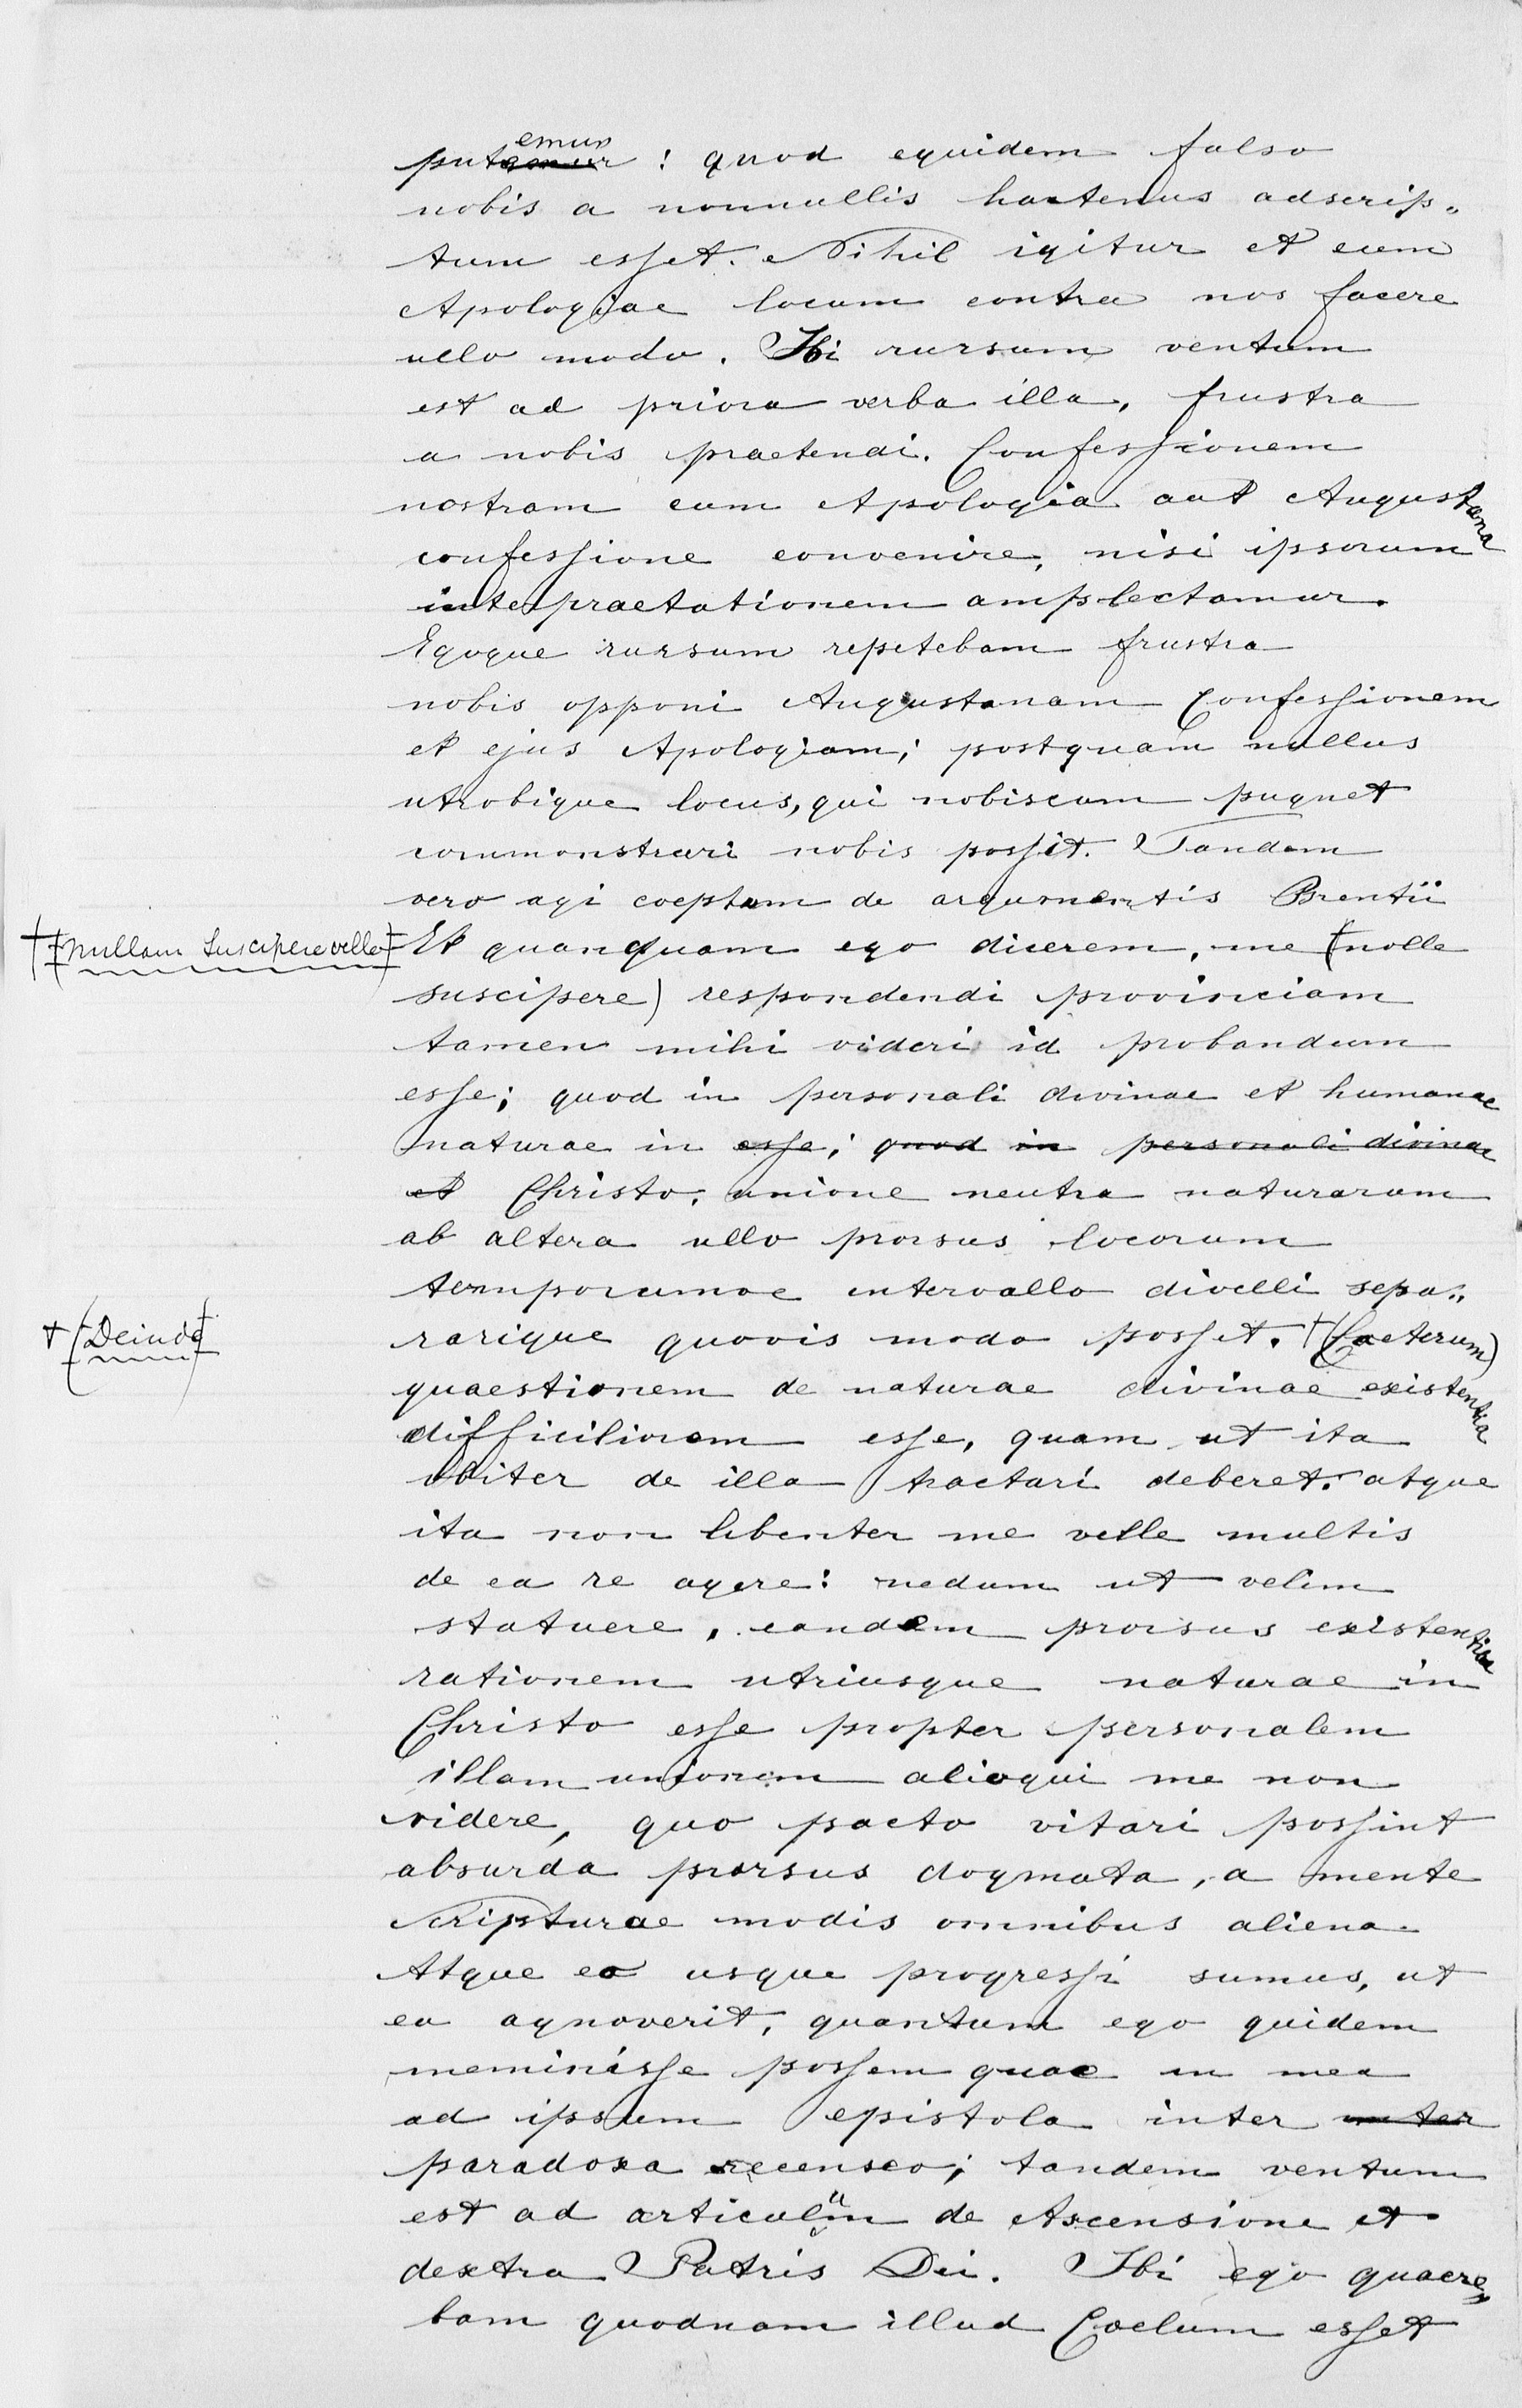 putemur : quod equidem falso
nobis a nonnullis hactenus adscrip„
tum esset. Nihil igitur et eum
Apologiae locum contra nos facere
ullo modo. Ibi rursum ventum
est ad priora verba illa, frustra
a nobis praetendi. Confessionem
nostram cum Apologia aut Augustana
confessione convenire, nisi ipsorum
interpraetationem amplectamur.
Egoque rursum repetebam frustra
nobis opponi Augustanam Confessionem
et ejus Apologiam; postquam nullus
utrobique locus, qui nobiscum pugnet
commonstrari nobis possit. Tandem
vero agi coeptum de argumentis Brentii
†(nullam suscipere velle) Et quanquam ego dicerem, me †(nolle
suscipere) respondendi provinciam
tamen mihi videri id probandum
esse; quod in personali divinae et humanae
naturae in esse; quod in personali divinae
et Christo, unione neutra naturarum
ab altera ullo prorsus locorum
temporumve intervallo divelli sepa„
† (Deinde) rarique quovis modo posset. †(Caeterum)
quaestionem de naturae divinae existentia
difficiliorem esse, quam ut ita
obiter de illa tractari deberet. atque
ita non libenter me velle multis
de ea re agere: nedum ut velim
statuere, eandem prorsus existentiae
rationem utriusque naturae in
Christo esse propter personalem
illam unionem alioqui me non
videre, quo pacto vitari possint
absurda prorsus dogmata, a mente
Scripturae modis omnibus aliena.
Atque eo usque progressi sumus, ut
ea agnoverit, quantum ego quidem
meminisse possem quae in mea
ad ipsum epistola inter inter
paradoxa recenseo; tandem ventum
est ad articulum de Ascensione et
dextra Patris Dei. Ibi ego quaere„
bam quodnam illud Coelum esset